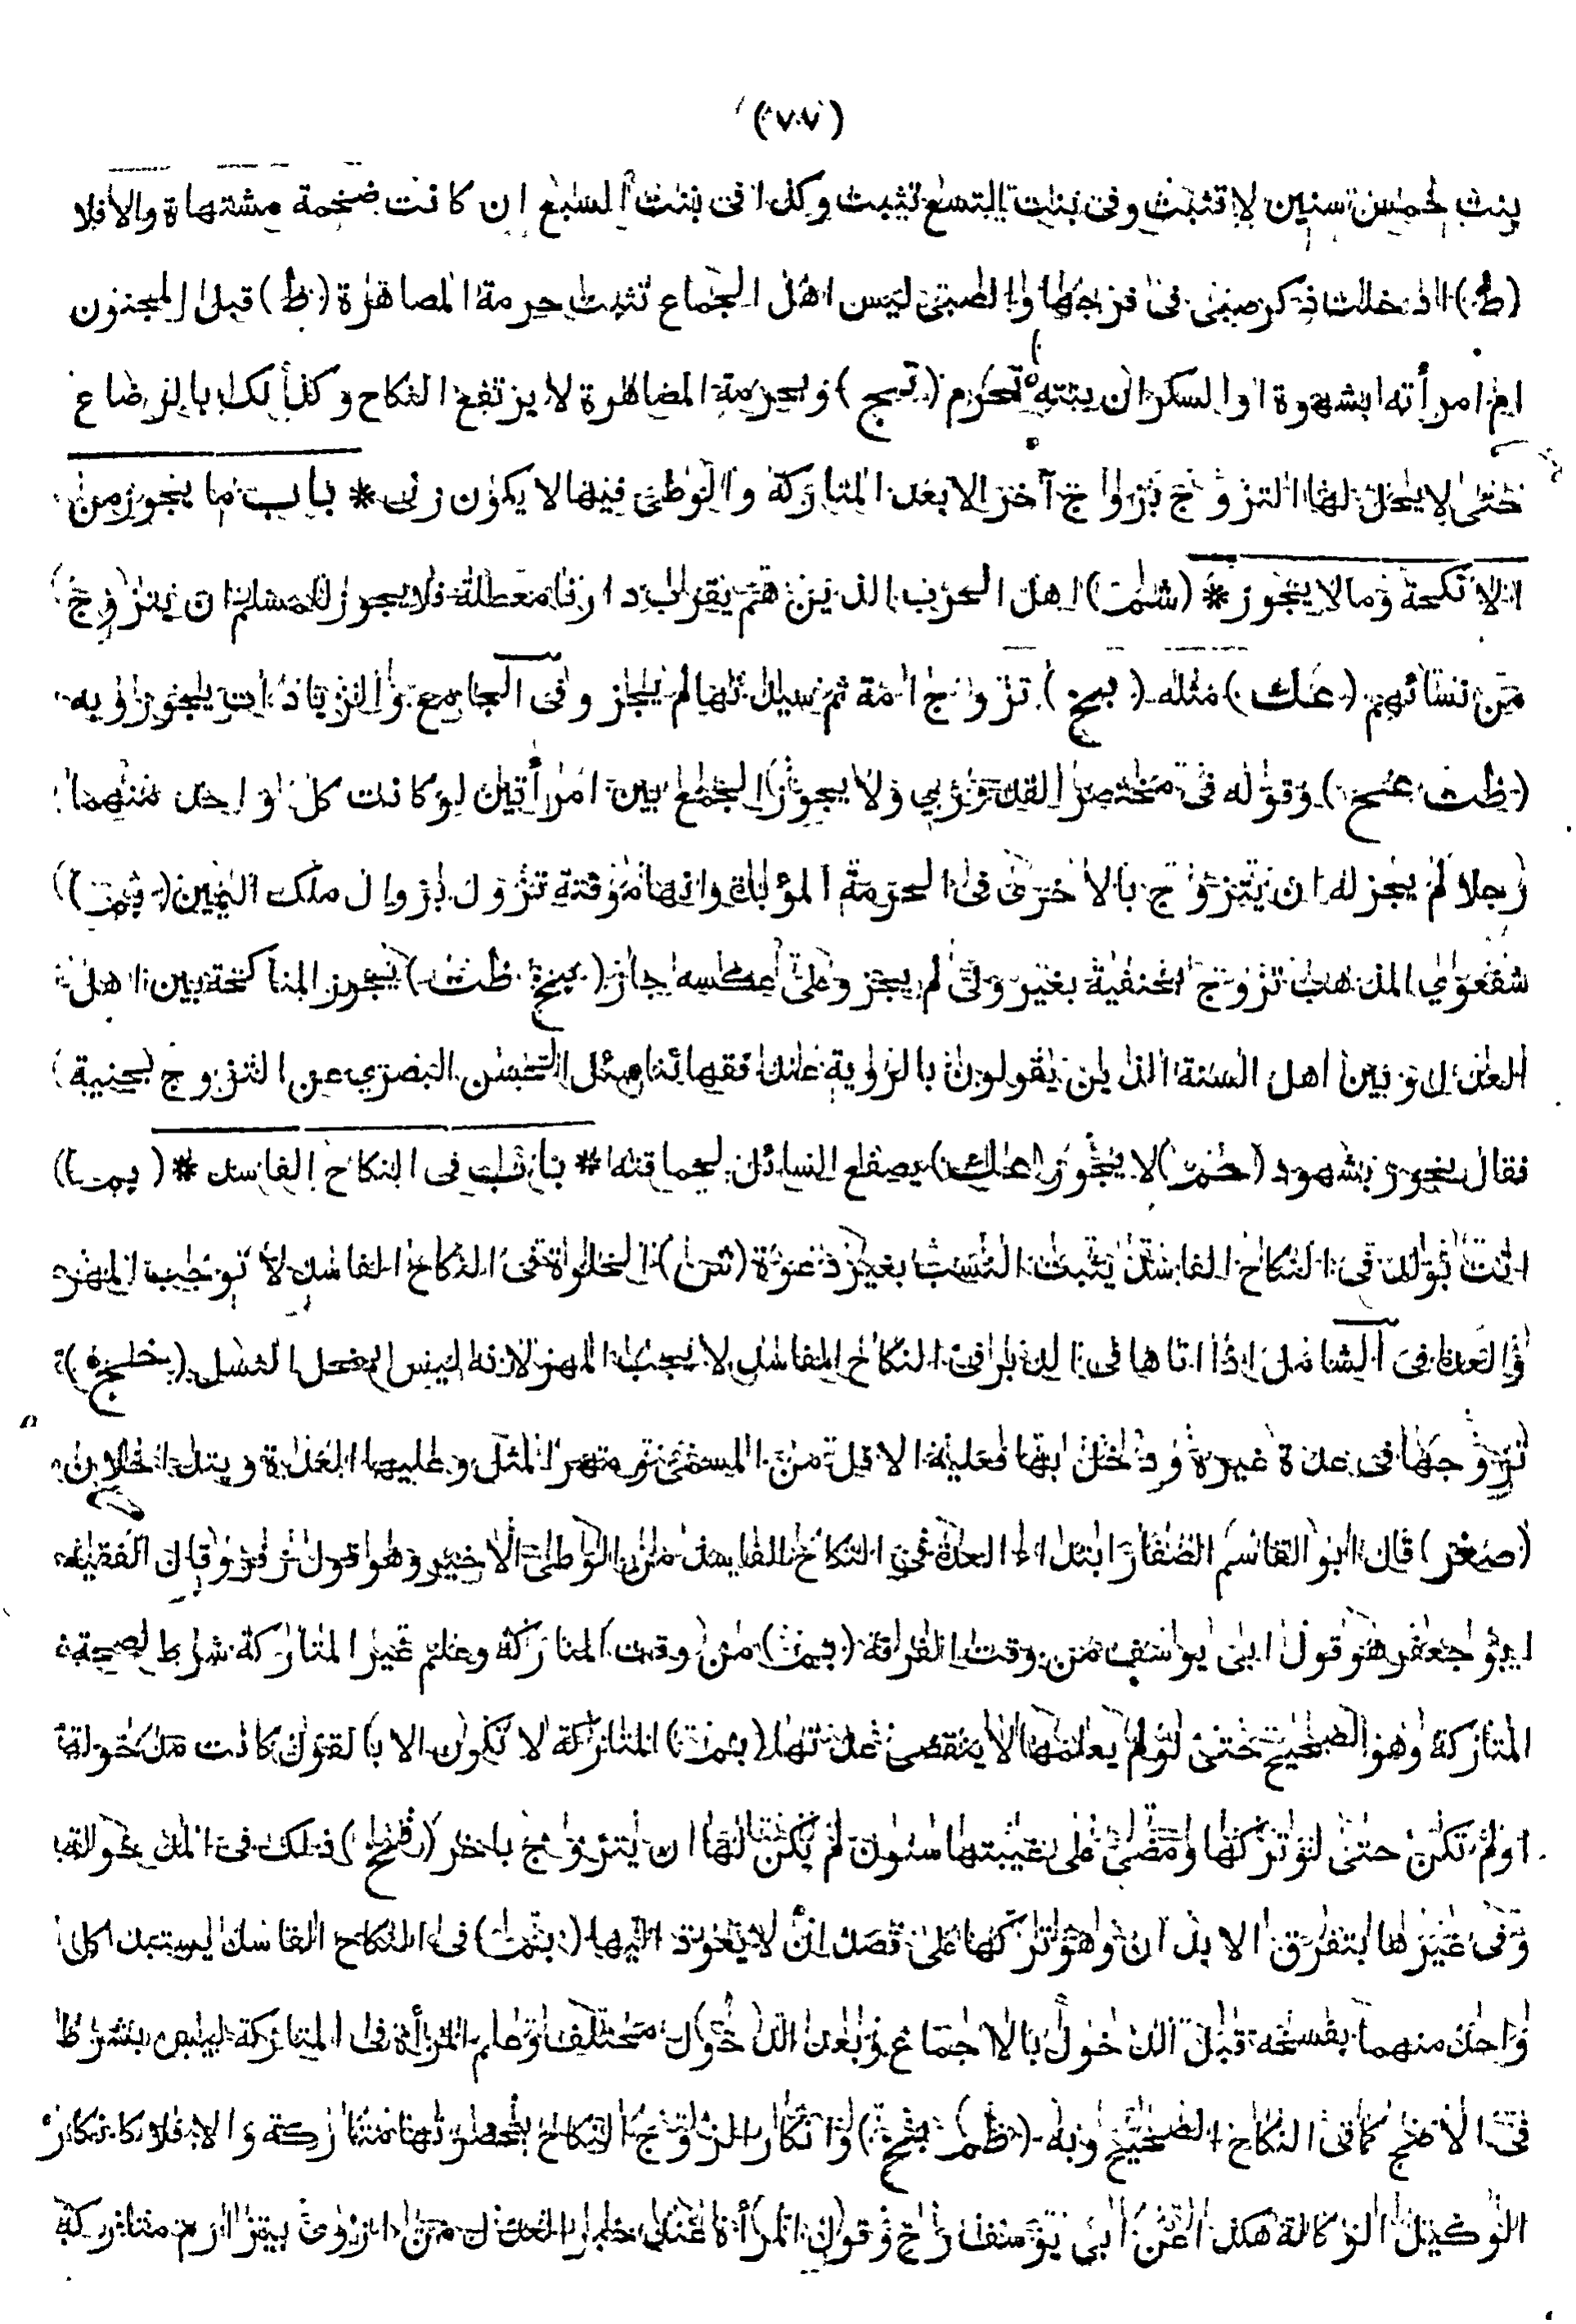 (٧٠٧)
بنت خمس سنين لا تثبت وفى بنت التسع تثبت وكذا فى بنت السبع ان كانت ضخمة مشتهاة والا فلا
(ط) ادخلت ذكر صبى فى فرجها والصبى ليس اهل الجماع تثبت حرمة المصاهرة (ظ) قبل المجنون
ام امرأته بشهوة او السكران بنته تحرم ( ) وبحرمة المصاهرة لا يرتفع النكاح وكذلك بالرضاع
حتى لا يحل لها التزوج بزواج آخر الا بعد المتاركة والوطئ فيها لا يكون زنى * باب ما يجوز من
الانكحة وما لا يجوز * (شمت) اهل الحرب الذين هم بقرب دارنا معطلة فلا يجوز للمسلم ان يتزوج
من نسائهم (عك) مثله (بخ) تزوج امة ثم سيدتها لم يجز وفى الجامع والزيادات يجوز وبه
(ظت عح) وقوله فى مختصر القدوري ولا يجوز الجمع بين امرأتين لو كانت كل واحد منهما
رجلا لم يجز له ان يتزوج بالاخرى فى الحرمة المؤبدة وانها مؤقتة تزول بزوال ملك اليمين (بمت)
شفعوي المذهب تزوج حنفية بغير ولى لم يجز وعلى عكسه جاز (بخ ظت) يجوز المناكحة بين اهل
العدل وبين اهل السنة الذين يقولون بالرؤية عند فقهائنا سئل الحسن البصري عن التزوج بجنية
فقال يجوز بشهود (حمت) لا يجوز (عك) يصفع السائل لحماقته * باب فى النكاح الفاسد * (بمت)
اتت بولد فى النكاح الفاسد يثبت النسب بغير دعوة ( ) الخلوة فى النكاح الفاسد لا توجب المهر
والعدة فى الشامل اذا اتاها فى الدبر فى النكاح الفاسد لا يجب المهر لانه ليس بمحل النسل ( )
تزوجها فى عدة غيره ودخل بها فعليه الاقل من المسمى ومهر المثل وعليها العدة ويتداخلان
(صغر) قال ابو القاسم الصفار ابتداء العدة فى النكاح الفاسد من الوطئ الاخير وهو قول زفر وقال الفقيه
ابو جعفر هو قول ابى يوسف من وقت الفرقة (بمت) من وقت المتاركة وعلم غير المتاركة شرط لصحة
المتاركة وهو الصحيح حتى لو لم يعلمها لا ينقضى عدتها (بمت) المتاركة لا تكون الا بالقول كانت مدخولة
او لم تكن حتى لو تركها ومضى على غيبتها سنون لم يكن لها ان يتزوج باخر ( ) ذلك فى المدخولة
وفى غيرها بتفرق الابدان وهو تركها على قصد ان لا يعود اليها (بمت) فى النكاح الفاسد يستبد كل
واحد منهما بفسخه قبل الدخول بالاجماع وبعد الدخول مختلف وعلم المرأة فى المتاركة ليس بشرط
فى الاصح كما فى النكاح الصحيح وبه (ظم بخ) وانكار الزوج النكاح بحضرتها متاركة والا فلا كانكار
الوكيل الوكالة هكذا عن ابى يوسف رح وقول المرأة عند العدل من ازوى بيزارم متاركة